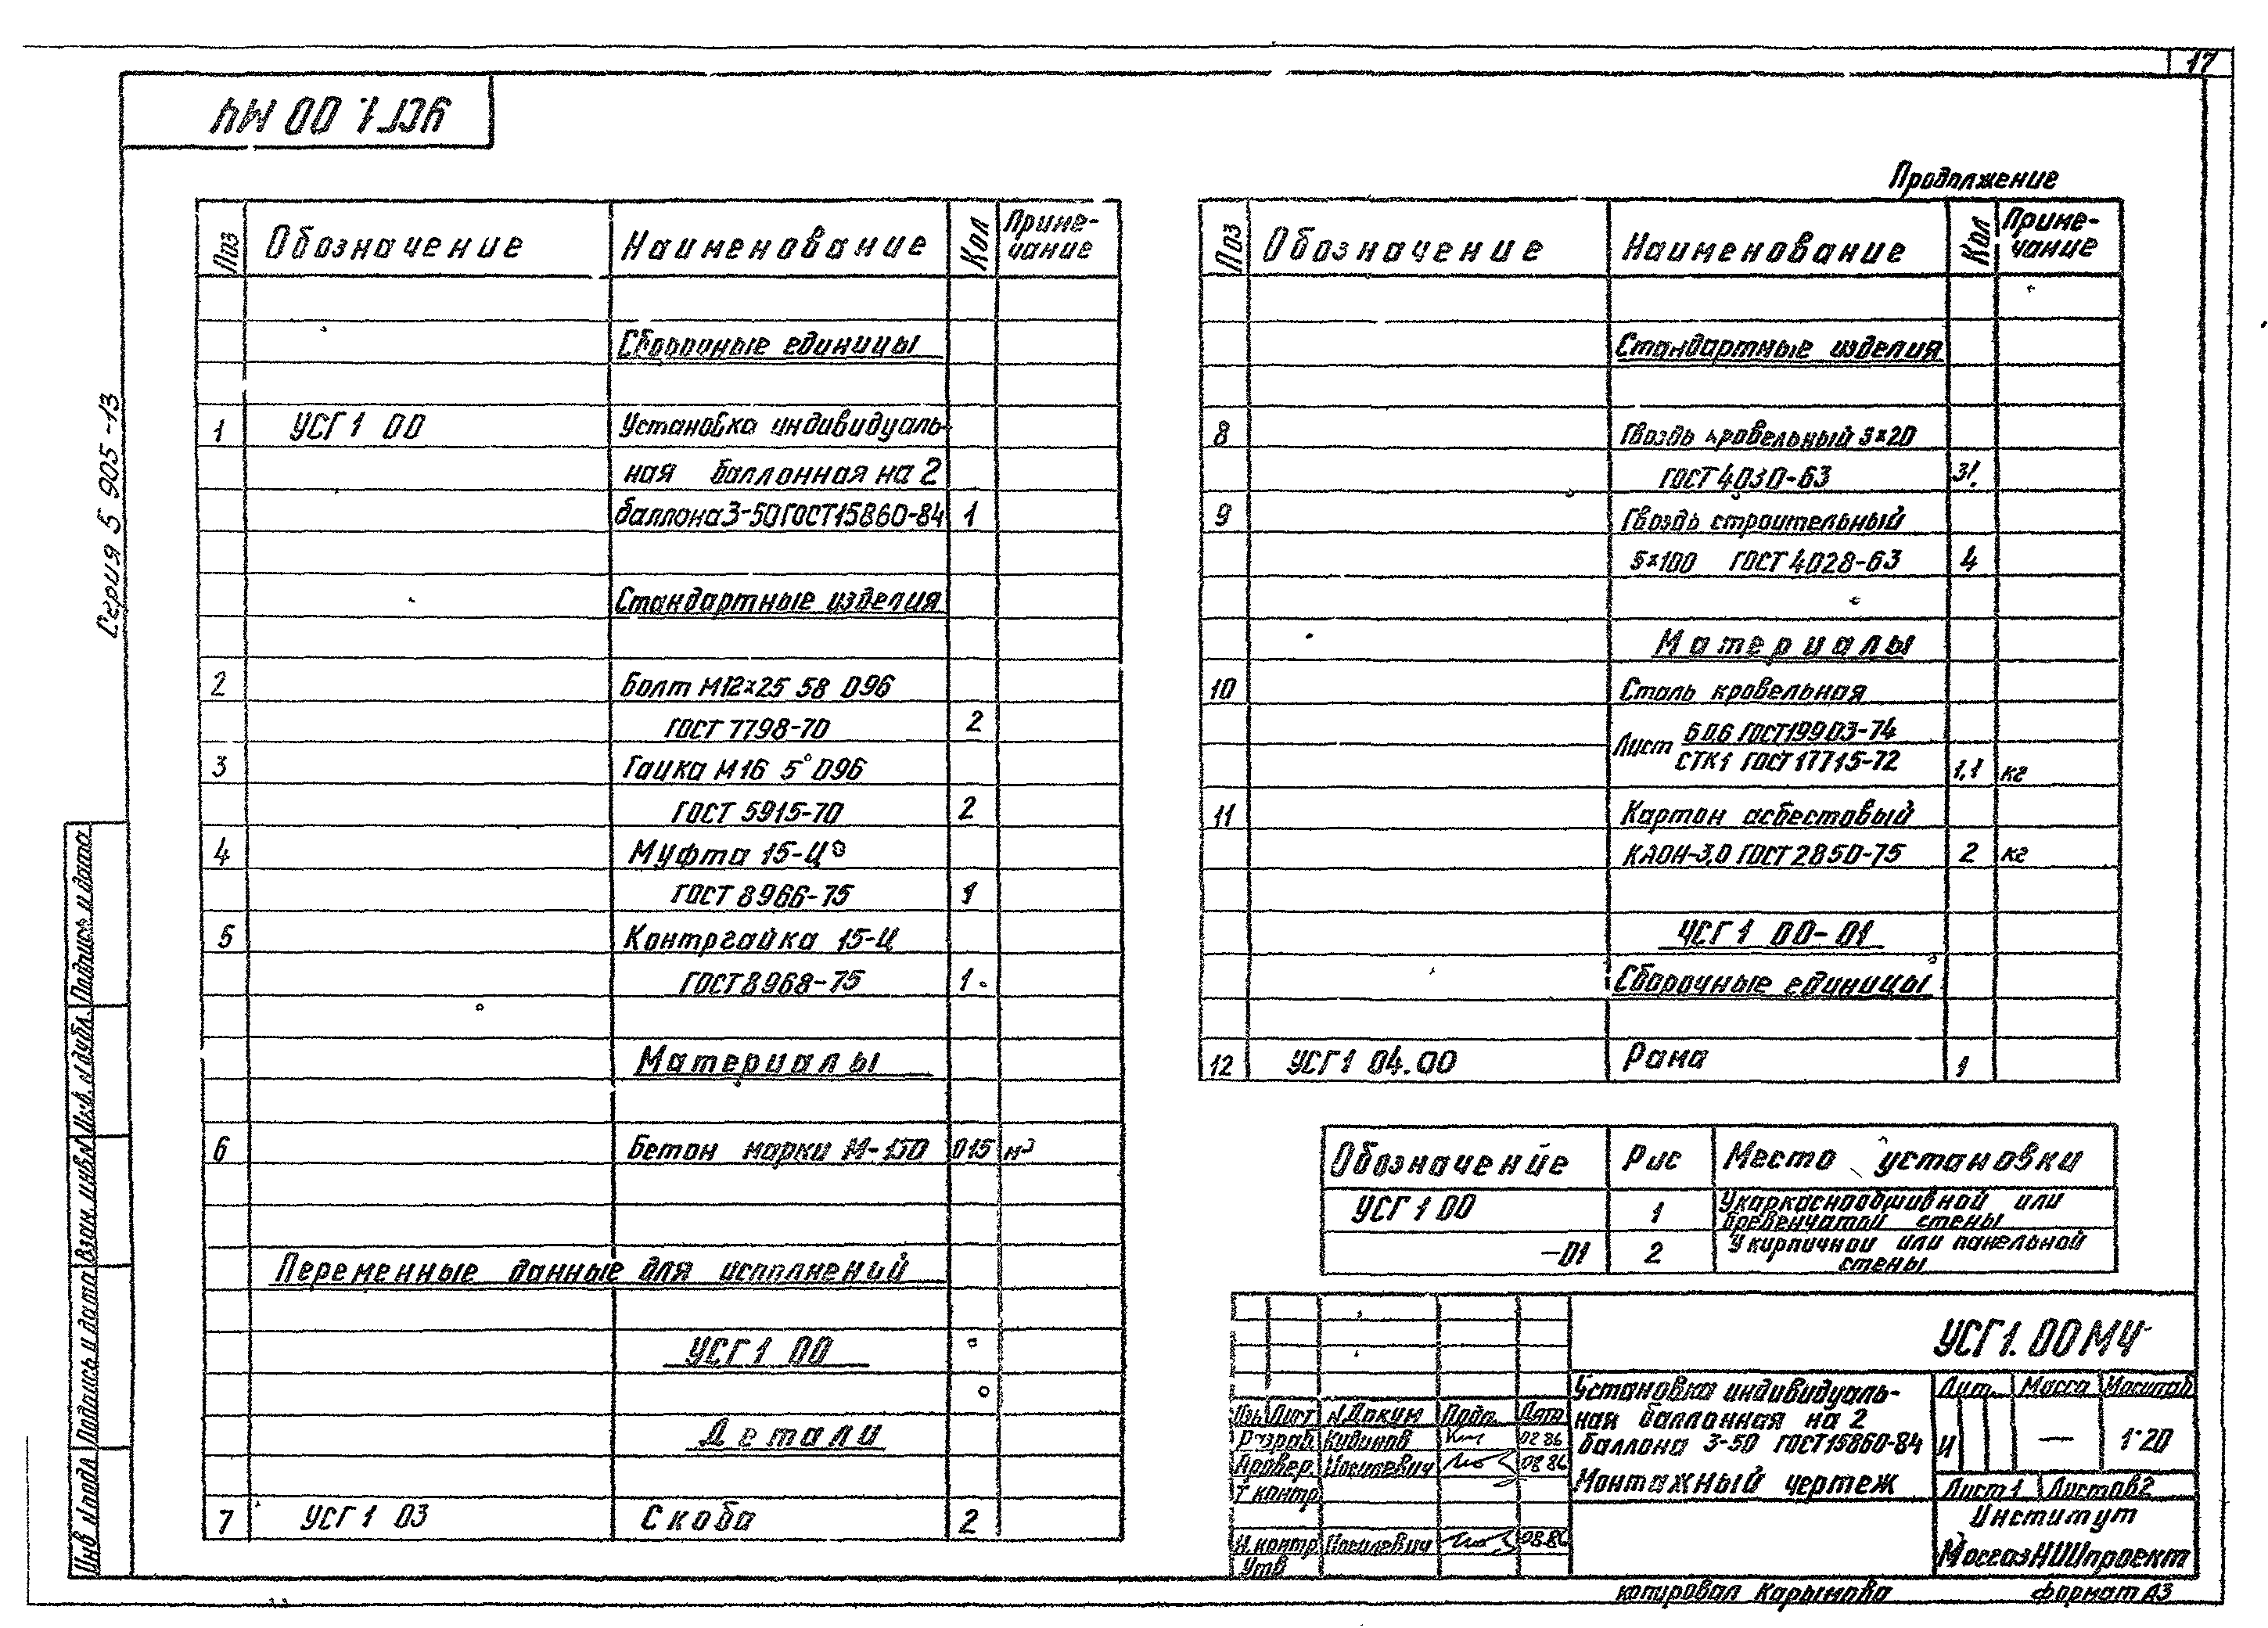 17
УСГ 1. 00 МЧ
Серия 5 905-13
Поз Обозначение Наименование Кол Приме-
чание
Сборочные единицы
1 УСГ 1 00 Установка индивидуаль-
ная баллонная на 2
баллона 3-50 ГОСТ 15860-84 1
Стандартные изделия
2 Болт М12×25 58 096
ГОСТ 7798-70 2
3 Гайка М16 5 096
ГОСТ 5915-70 2
4 Муфта 15-Ц
ГОСТ 8966-75 1
5 Контргайка 15-Ц
ГОСТ 8968-75 1
Материалы
6 Бетон марки М-150 015 м³
Переменные данные для исполнений
УСГ 1 00
Детали
7 УСГ 1 03 Скоба 2
Продолжение
Поз Обозначение Наименование Кол Приме-
чание
Стандартные изделия
8 Гвоздь кровельный 3×20
ГОСТ 4030-63
9 Гвоздь строительный
5×100 ГОСТ 4028-63 4
Материалы
10 Сталь кровельная
Лист Б 0.6 ГОСТ 19903-74
СТК1 ГОСТ 17715-72 1,1 кг
11 Картон асбестовый
КАОН-3,0 ГОСТ 2850-75 2 кг
УСГ 1 00-01
Сборочные единицы
12 УСГ 1 04.00 Рама 1
Обозначение Рис Место установки
УСГ 1 00 1 У каркаснообшивной или
бревенчатой стены
-01 2 У кирпичной или панельной
стены
УСГ 1. 00 МЧ
Установка индивидуаль-
ная баллонная на 2
баллона 3-50 ГОСТ 15860-84
Монтажный чертеж
Лит. Масса Масштаб
И — 1:20
Лист 1 Листов 2
Институт
МосгазНИИпроект
Изм Лист N Докум Подп. Дата
Разраб. 02 86
Провер. 08 86
Т контр
Н. контр 08.86
Утв
Инв N подл Подпись и дата Взам инв N Инв. N дубл. Подпись и дата
копировал Карымова формат А3